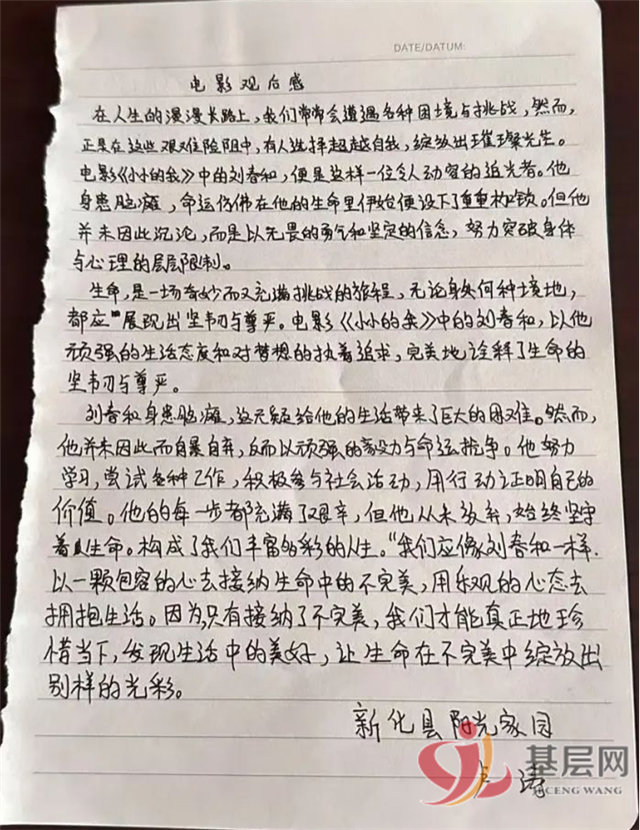 DATE/DATUM:
电影观后感
在人生的漫漫长路上,我们常常会遭遇各种困境与挑战,然而,
正是在这些艰难险阻中,有人选择超越自我,绽放出璀璨光芒。
电影《小小的我》中的刘春和,便是这样一位令人动容的追光者。他
身患脑瘫,命运仿佛在他的生命里伊始便设下了重重枷锁。但他
并未因此沉沦,而是以无畏的勇气和坚定的信念,努力突破身体
与心理的层层限制。
生命,是一场奇妙而又充满挑战的旅程,无论身处何种境地,
都应"展现出坚韧与尊严。电影《小小的我》中的刘春和,以他
顽强的生活态度和对梦想的执着追求,完美地诠释了生命的
坚韧与尊严。
刘春和身患脑瘫,这无疑给他的生活带来了巨大的困难。然而,
他并未因此而自暴自弃,反而以顽强的毅力与命运抗争。他努力
学习,尝试各种工作,积极参与社会活动,用行动证明自己的
价值。他的每一步都充满了艰辛,但他从未放弃,始终坚守
着生命。构成了我们丰富多彩的人生。"我们应像刘春和一样.
以一颗包容的心去接纳生命中的不完美,用乐观的心态去
拥抱生活。因为只有接纳了不完美,我们才能真正地珍
惜当下,发现生活中的美好,让生命在不完美中绽放出
别样的光彩。
新化县阳光家园
涛
基层网
JICENG WANG